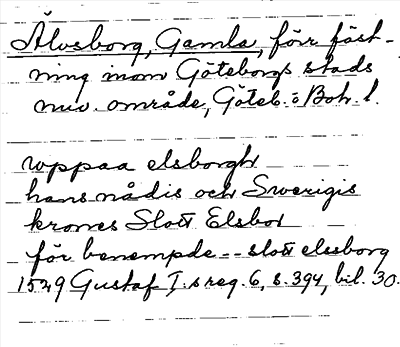 Älvsborg, Gamla, förr fäst-
ning inom Göteborgs stads
nuv. område, Göteb. o Boh. l.
uppaa elsborgh
hans nådis och Swerigis
krones Slott Elsbor
för benempde -- slott elssborg
1549 Gustaf I:s reg. 6, s. 394, bil. 30.